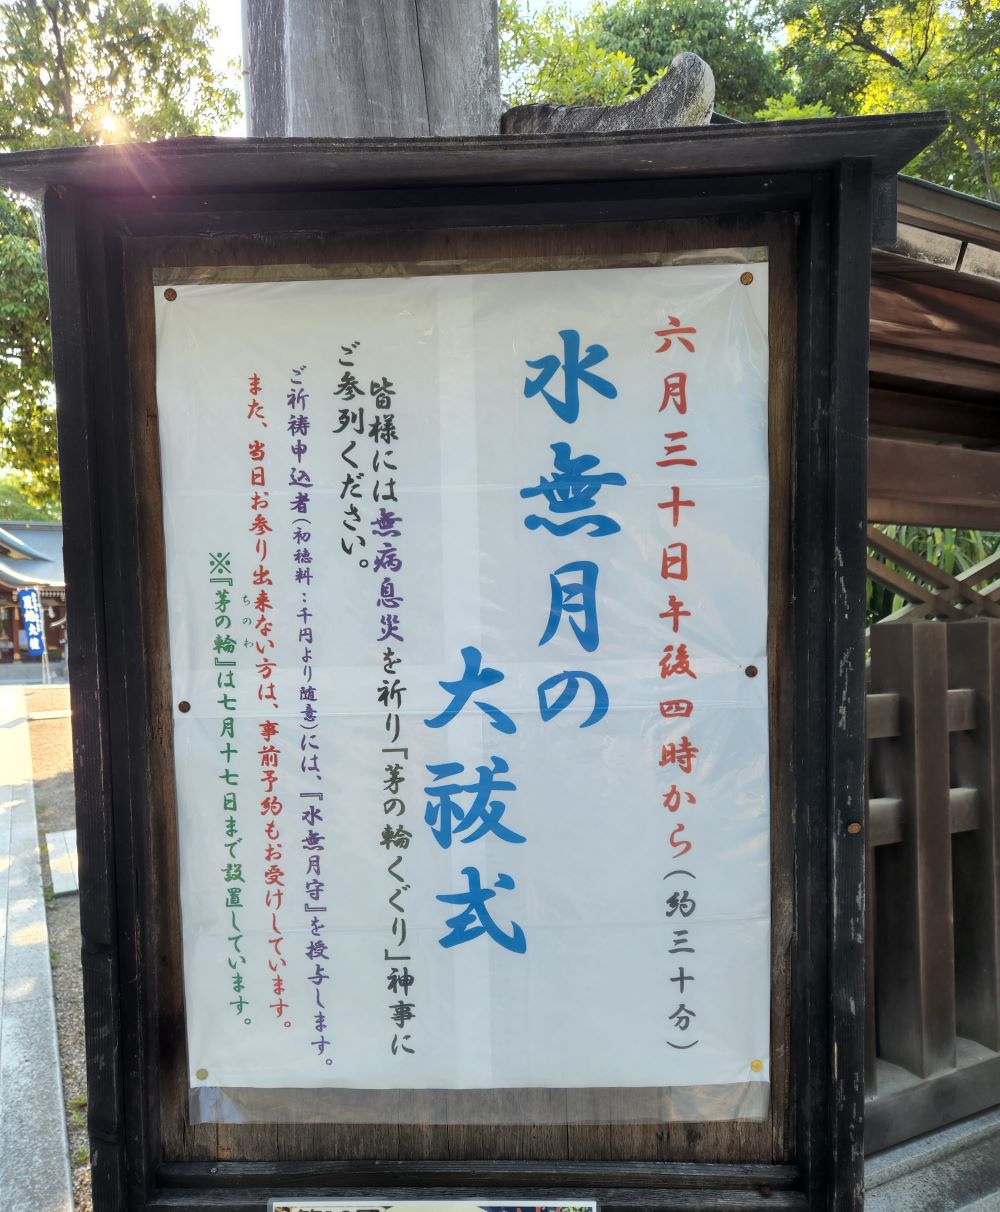 六月三十日午後四時から(約三十分)
水無月の
大祓式
皆様には無病息災を祈り「茅の輪くぐり」神事に
ご参列ください。
ご祈祷申込者(初穂料：千円より随意)には、『水無月守』を授与します。
また、当日お参り出来ない方は、事前予約もお受けしています。
ちのわ
※『茅の輪』は七月十七日まで設置しています。